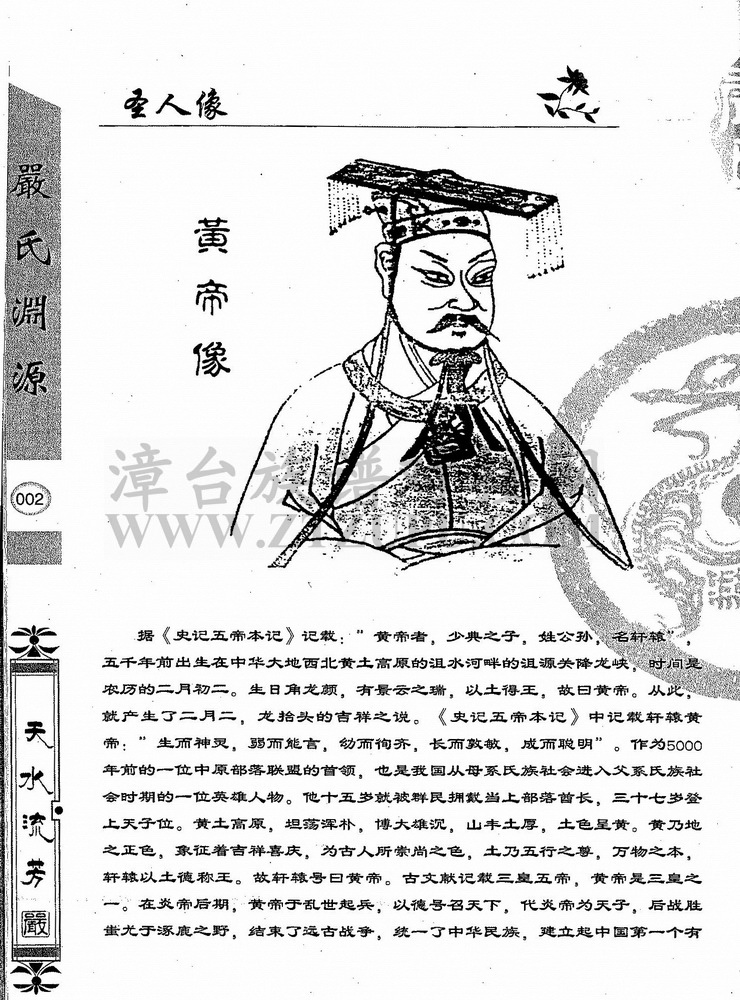 圣人像
嚴氏淵源
002
黃帝像
漳台族谱
www.z
据《史记五帝本记》记载："黄帝者，少典之子，姓公孙，名轩辕"，
五千年前出生在中华大地西北黄土高原的沮水河畔的沮源关降龙峡，时间是
农历的二月初二。生日角龙颜，有景云之瑞，以土得王，故曰黄帝。从此，
就产生了二月二，龙抬头的吉祥之说。《史记五帝本记》中记载轩辕黄
帝："生而神灵，弱而能言，幼而徇齐，长而敦敏，成而聪明"。作为5000
年前的一位中原部落联盟的首领，也是我国从母系氏族社会进入父系氏族社
会时期的一位英雄人物。他十五岁就被群民拥戴当上部落酋长，三十七岁登
上天子位。黄土高原，坦荡浑朴，博大雄沉，山丰土厚，土色呈黄。黄乃地
之正色，象征着吉祥喜庆，为古人所崇尚之色，土乃五行之尊，万物之本，
轩辕以土德称王。故轩辕号曰黄帝。古文献记载三皇五帝，黄帝是三皇之
一。在炎帝后期，黄帝于乱世起兵，以德号召天下，代炎帝为天子，后战胜
蚩尤于涿鹿之野，结束了远古战争，统一了中华民族，建立起中国第一个有
天水流芳
嚴